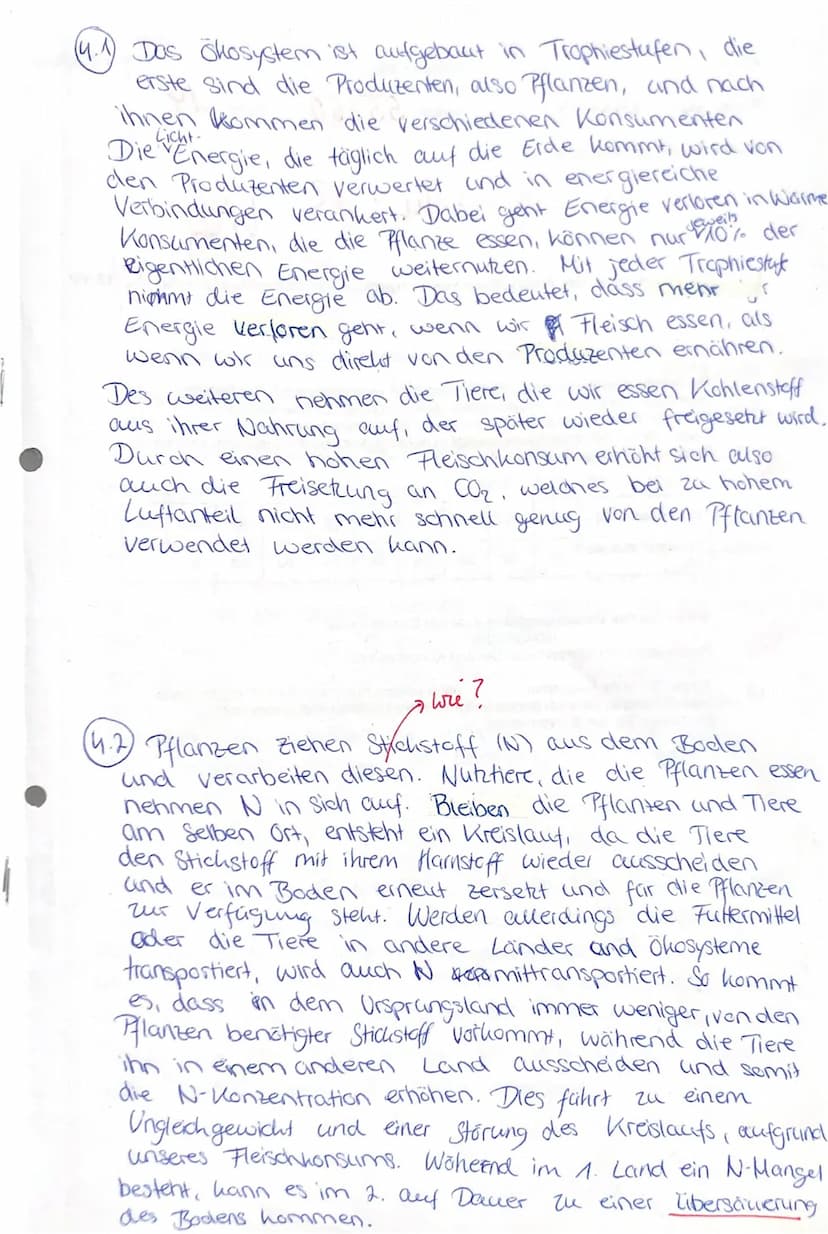 4.1 Das Ökosystem ist aufgebaut in Trophiestufen, die
erste sind die Produzenten, also Pflanzen, und nach
ihnen kommen die verschiedenen Konsumenten
Licht-
Die Energie, die täglich auf die Erde kommt, wird von
den Produzenten verwertet und in energiereiche
Verbindungen verankert. Dabei geht Energie verloren in Wärme
jeweils
Konsumenten, die die Pflanze essen, können nur 10% der
eigentlichen Energie weiternutzen. Mit jeder Trophiestufe
nimmt die Energie ab. Das bedeutet, dass mehr
Energie verloren geht, wenn wir Fleisch essen, als
wenn wir uns direkt von den Produzenten ernähren.
Des weiteren nehmen die Tiere, die wir essen Kohlenstoff
aus ihrer Nahrung auf, der später wieder freigesetzt wird.
Durch einen hohen Fleischkonsum erhöht sich also
auch die Freisetzung an CO₂, welches bei zu hohem
Luftanteil nicht mehr schnell genug von den Pflanzen
verwendet werden kann.
wie?
4.2 Pflanzen ziehen Stickstoff (N) aus dem Boden
und verarbeiten diesen. Nutztiere, die die Pflanzen essen
nehmen N in sich auf. Bleiben die Pflanzen und Tiere
am selben Ort, entsteht ein Kreislauf, da die Tiere
den Stickstoff mit ihrem Harnstoff wieder ausscheiden
und er im Boden erneut zersetzt und für die Pflanzen
zur Verfügung steht. Werden allerdings die Futtermittel
oder die Tiere in andere Länder und Ökosysteme
transportiert, wird auch N mittransportiert. So kommt
es, dass in dem Ursprungsland immer weniger, von den
Pflanzen benötigter Stickstoff vorkommt, während die Tiere
ihn in einem anderen Land ausscheiden und somit
die N-Konzentration erhöhen. Dies führt zu einem
Ungleichgewicht und einer Störung des Kreislaufs, aufgrund
unseres Fleischkonsums. Während im 1. Land ein N-Mangel
besteht, kann es im 2. auf Dauer zu einer Übersäuerung
des Bodens kommen.